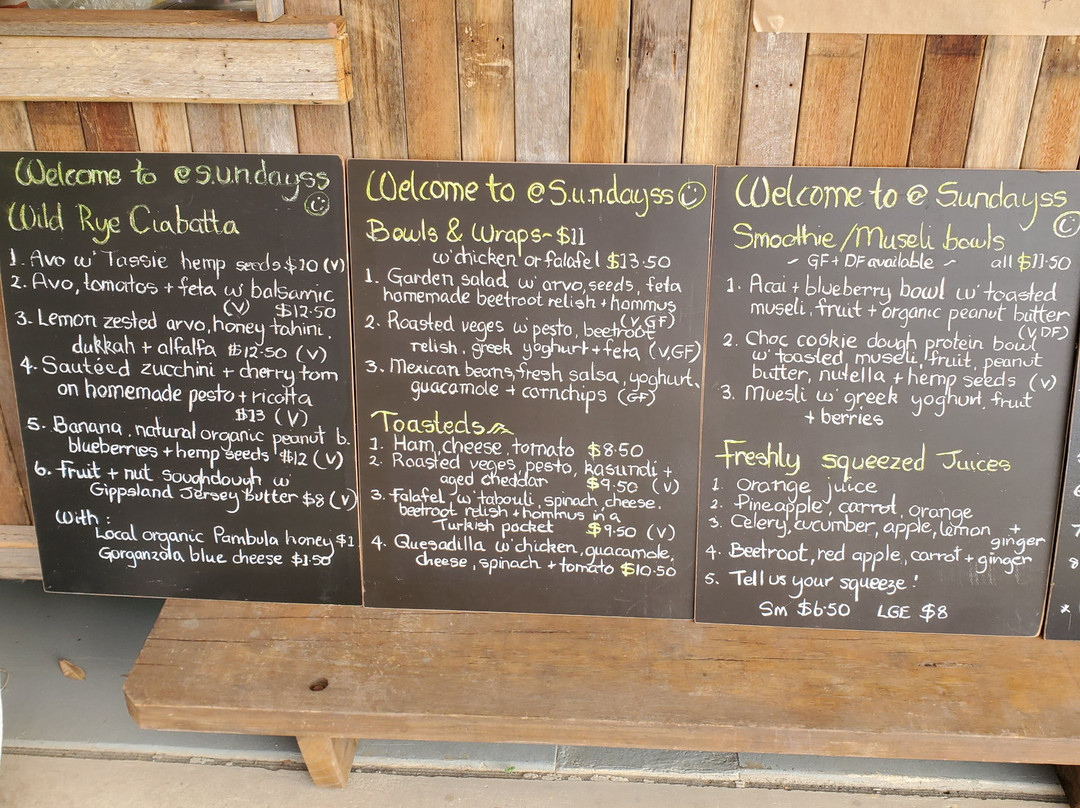 Welcome to @s.un.dayss
Wild Rye Ciabatta
1. Avo w' Tassie hemp seeds $10 (V)
2. Avo, tomatos + feta w' balsamic
(V) $12.50
3. Lemon zested arvo, honey tahini,
dukkah + alfalfa $12.50 (V)
4. Sautéed zucchini + cherry tom
on homemade pesto + ricotta
$13 (V)
5. Banana, natural organic peanut b.
blueberries + hemp seeds $12 (V)
6. Fruit + nut soughdough w'
Gippsland Jersey butter $8 (V)
With :
Local organic Pambula honey $1
Gorganzola blue cheese $1.50
Welcome to @S.u.n.dayss
Bowls & Wraps ~ $11
w' chicken or falafel $13.50
1. Garden salad w' arvo, seeds, feta
homemade beetroot relish + hommus
(V, GF)
2. Roasted veges w' pesto, beetroot
relish, greek yoghurt + feta (V, GF)
3. Mexican beans, fresh salsa, yoghurt,
guacamole + cornchips (GF)
Toasteds
1. Ham, cheese, tomato $8.50
2. Roasted veges, pesto, kasundi +
aged cheddar $9.50 (V)
3. Falafel, w' tabouli, spinach, cheese,
beetroot relish + hommus in a
Turkish pocket $9.50 (V)
4. Quesadilla w' chicken, guacamole,
cheese, spinach + tomato $10.50
Welcome to @ Sundayss
Smoothie / Museli bowls
~ GF + DF available ~ all $11.50
1. Acai + blueberry bowl w' toasted
museli, fruit + organic peanut butter
(V, DF)
2. Choc cookie dough protein bowl
w' toasted, museli, fruit, peanut
butter, nutella + hemp seeds (V)
3. Muesli w' greek yoghurt, fruit
+ berries
Freshly squeezed Juices
1. Orange juice
2. Pineapple, carrot, orange
3. Celery, cucumber, apple, lemon +
ginger
4. Beetroot, red apple, carrot + ginger
5. Tell us your squeeze!
Sm $6.50 LGE $8